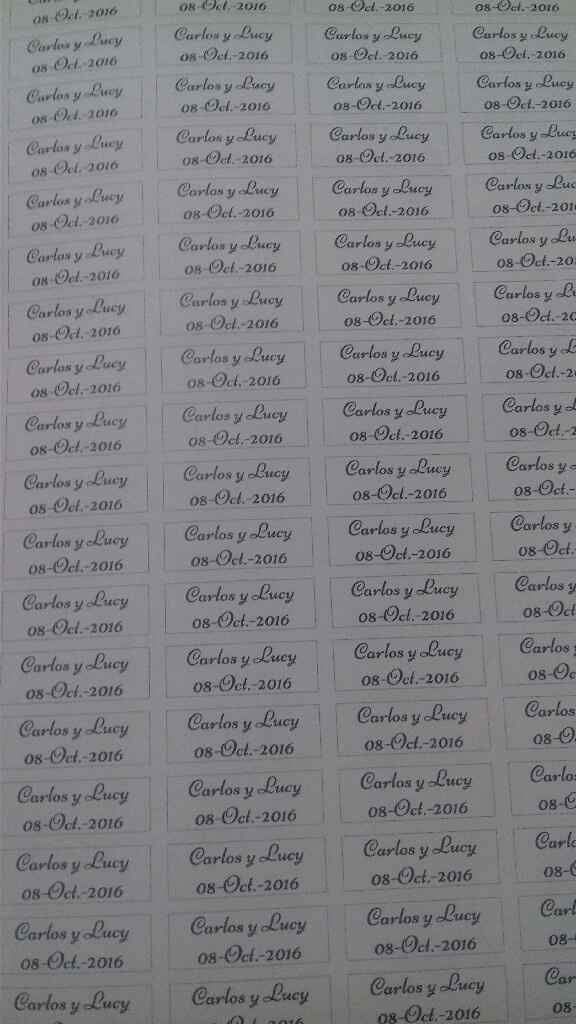 08-Oct.-2016 08-Oct.-2016 08-Oct.-2016 08-Oct.-2016
Carlos y Lucy Carlos y Lucy Carlos y Lucy Carlos y Lucy
08-Oct.-2016 08-Oct.-2016 08-Oct.-2016 08-Oct.-2016
Carlos y Lucy Carlos y Lucy Carlos y Lucy Carlos y Lucy
08-Oct.-2016 08-Oct.-2016 08-Oct.-2016 08-Oct.-2016
Carlos y Lucy Carlos y Lucy Carlos y Lucy Carlos y Lucy
08-Oct.-2016 08-Oct.-2016 08-Oct.-2016 08-Oct.-2016
Carlos y Lucy Carlos y Lucy Carlos y Lucy Carlos y
08-Oct.-2016 08-Oct.-2016 08-Oct.-2016 08-Oct.
Carlos y Lucy Carlos y Lucy Carlos y Lucy Carlos y
08-Oct.-2016 08-Oct.-2016 08-Oct.-2016 08-Oct.
Carlos y Lucy Carlos y Lucy Carlos y Lucy Carlos y
08-Oct.-2016 08-Oct.-2016 08-Oct.-2016 08-Oct.
Carlos y Lucy Carlos y Lucy Carlos y Lucy Carlos y
08-Oct.-2016 08-Oct.-2016 08-Oct.-2016 08-Oct.
Carlos y Lucy Carlos y Lucy Carlos y Lucy Carlos y
08-Oct.-2016 08-Oct.-2016 08-Oct.-2016 08-Oct.
Carlos y Lucy Carlos y Lucy Carlos y Lucy Carlos y
08-Oct.-2016 08-Oct.-2016 08-Oct.-2016 08-Oct.
Carlos y Lucy Carlos y Lucy Carlos y Lucy Carlos y
08-Oct.-2016 08-Oct.-2016 08-Oct.-2016 08-Oct.
Carlos y Lucy Carlos y Lucy Carlos y Lucy Carlos y
08-Oct.-2016 08-Oct.-2016 08-Oct.-2016 08-Oct
Carlos y Lucy Carlos y Lucy Carlos y Lucy Carlos
08-Oct.-2016 08-Oct.-2016 08-Oct.-2016 08-
Carlos y Lucy Carlos y Lucy Carlos y Lucy Carlos
08-Oct.-2016 08-Oct.-2016 08-Oct.-2016 08-
Carlos y Lucy Carlos y Lucy Carlos y Lucy
08-Oct.-2016 08-Oct.-2016 08-Oct.-2016 08-
Carlos y Lucy Carlos y Lucy Carlos y Lucy
08-Oct.-2016 08-Oct.-2016 08-Oct.-2016 08-
Carlos y Lucy Carlos y Lucy Carlos y Lucy
08-Oct.-2016 08-Oct.-2016 08-Oct.-2016 08-
Carlos y Lucy Carlos y Lucy Carlos y Lucy
08-Oct.-2016